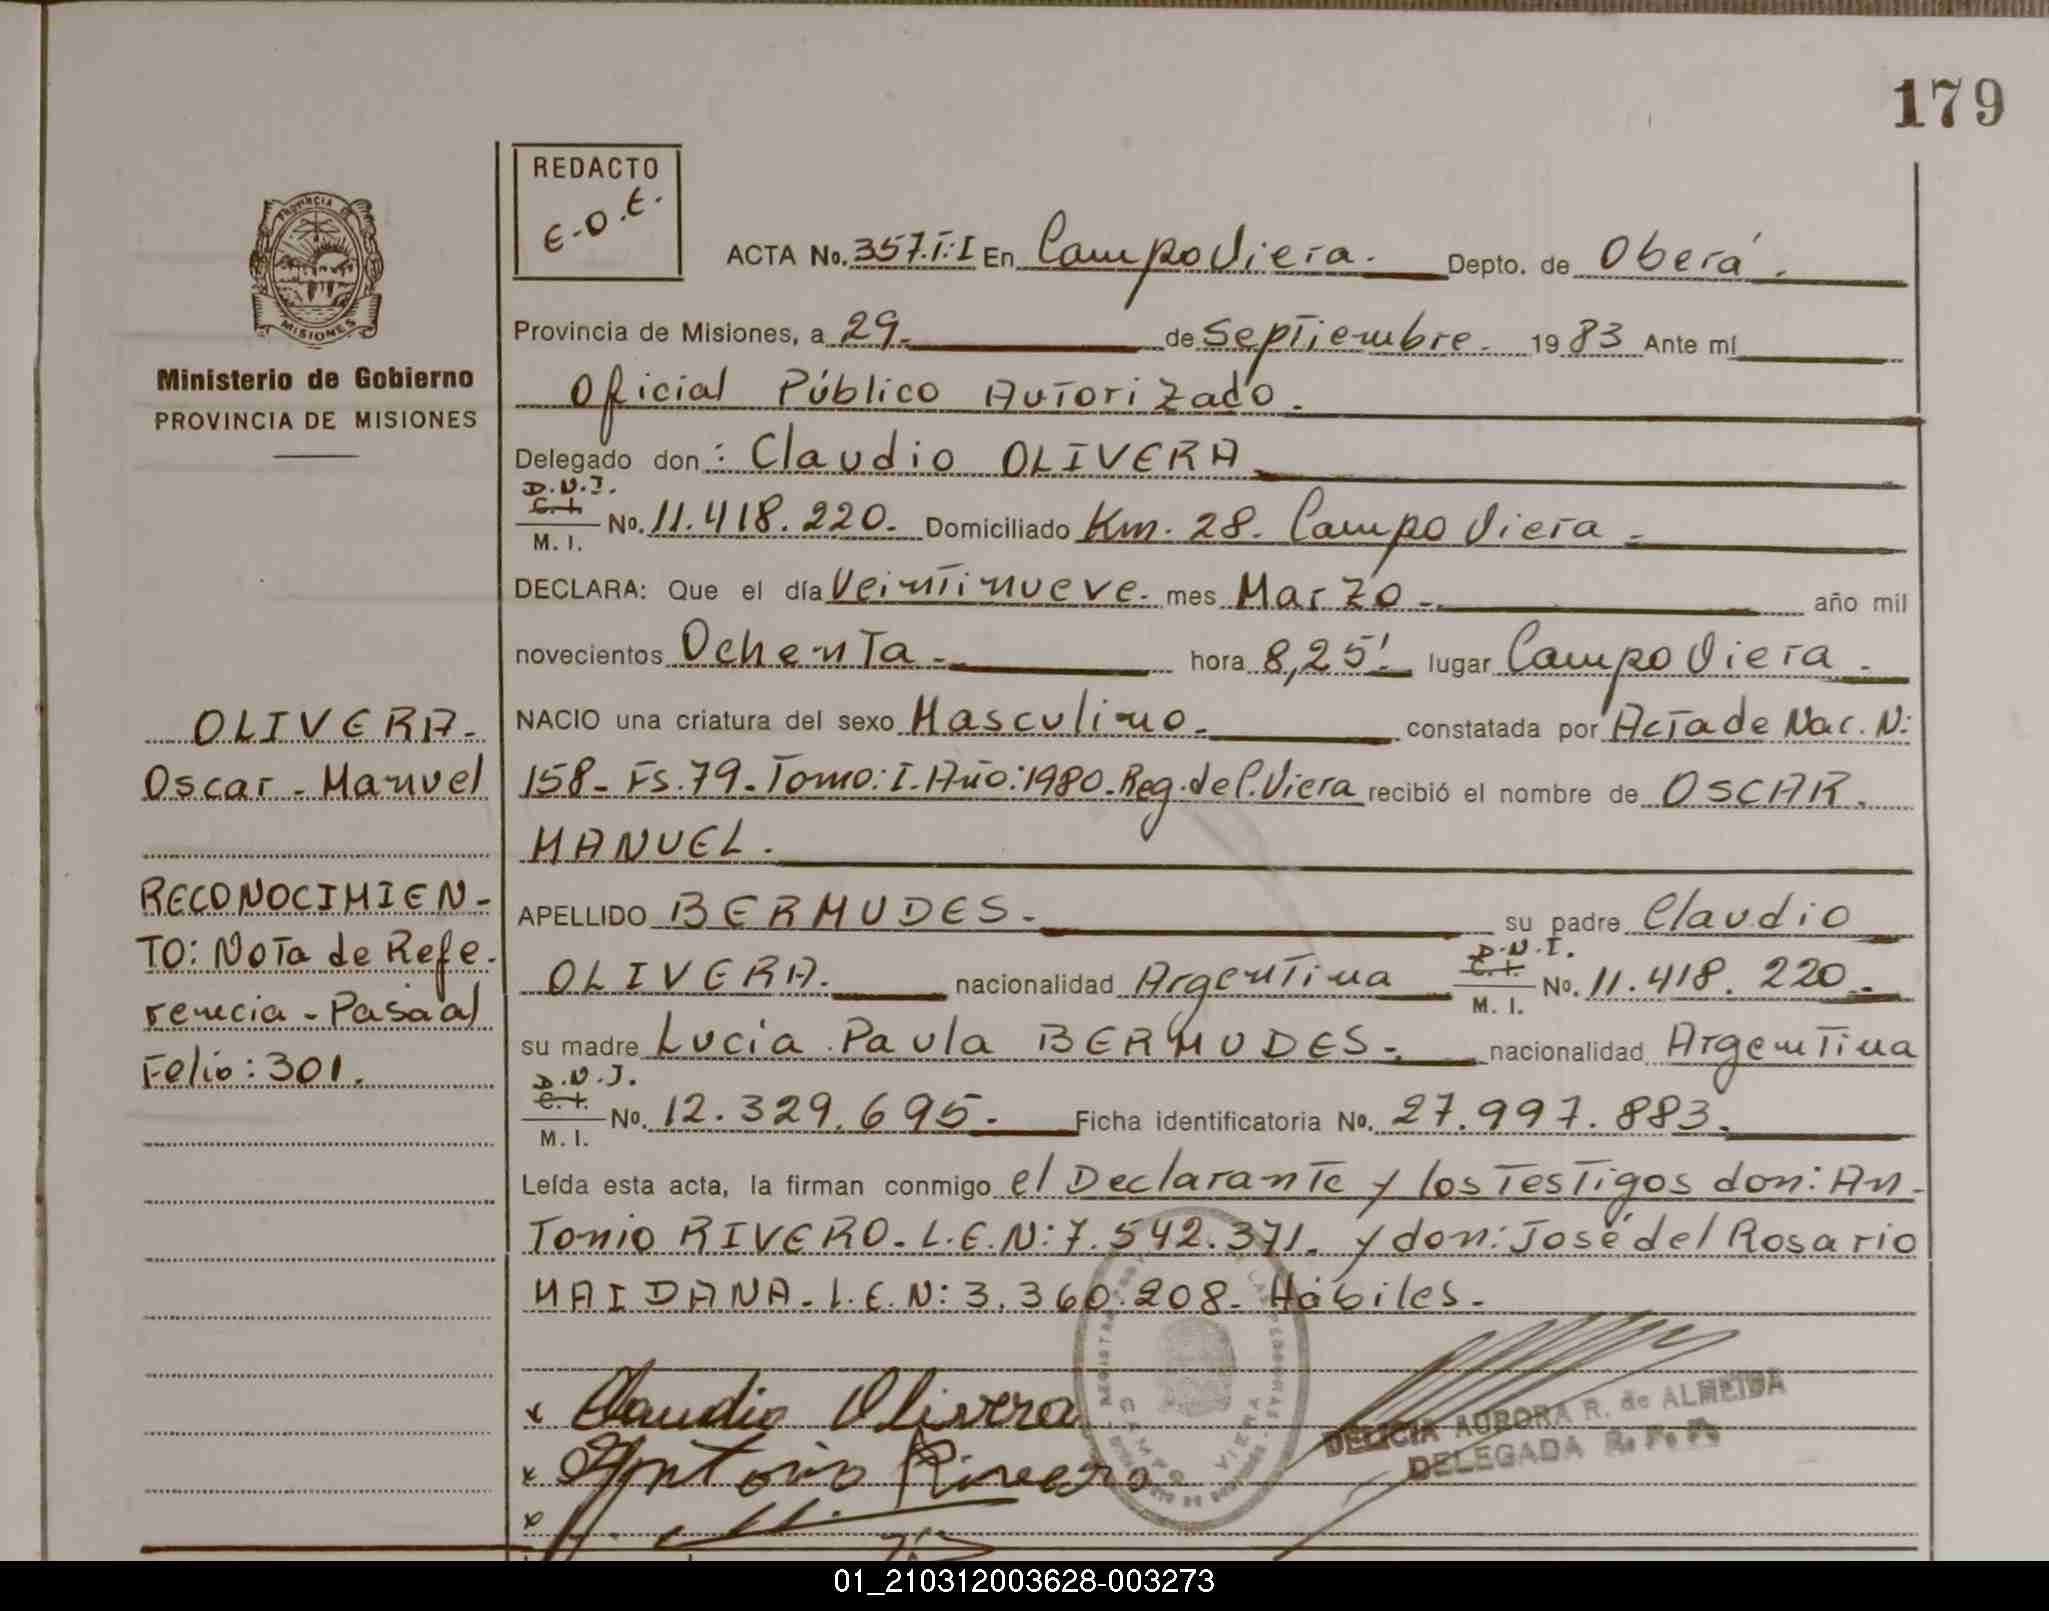 179
REDACTO
E.O.E.
ACTA No. 357.T:I En Campo Viera. Depto. de Oberá.
Provincia de Misiones, a 29. de Septiembre. 1983 Ante mí
Oficial Público Autorizado.
Delegado don: Claudio OLIVERA
D.N.I.
C.I.
M. I. No. 11.418.220. Domiciliado Km. 28. Campo Viera.
DECLARA: Que el día Veintinueve. mes Marzo. año mil
novecientos Ochenta. hora 8,25'. lugar Campo Viera.
NACIO una criatura del sexo Masculino. constatada por Acta de Nac. N:
158- Fs. 79. Tomo: I. Año: 1980. Reg. del C. Viera recibió el nombre de OSCAR.
MANUEL.
APELLIDO BERMUDES. su padre Claudio
OLIVERA. nacionalidad Argentina D.N.I. C.I. M. I. No. 11.418.220.
su madre Lucia Paula BERMUDES. nacionalidad Argentina
D.N.I.
C.I.
M. I. No. 12.329.695. Ficha identificatoria No. 27.997.883.
Leída esta acta, la firman conmigo el Declarante y los Testigos don: An-
tonio RIVERO. L.E.N: 7.542.371. y don: José del Rosario
MAIDANA. L.E.N: 3.360.208. Hábiles.
Claudio Olivera
Antonio Rivero
CAMPO VIERA
DELICIA AURORA R. de ALMEIDA
DELEGADA R. P. P.
PROVINCIA
MISIONES
Ministerio de Gobierno
PROVINCIA DE MISIONES
OLIVERA.
Oscar - Manuel
RECONOCIMIEN-
TO: Nota de Refe-
rencia - Pasa al
Folio: 301.
01_210312003628-003273